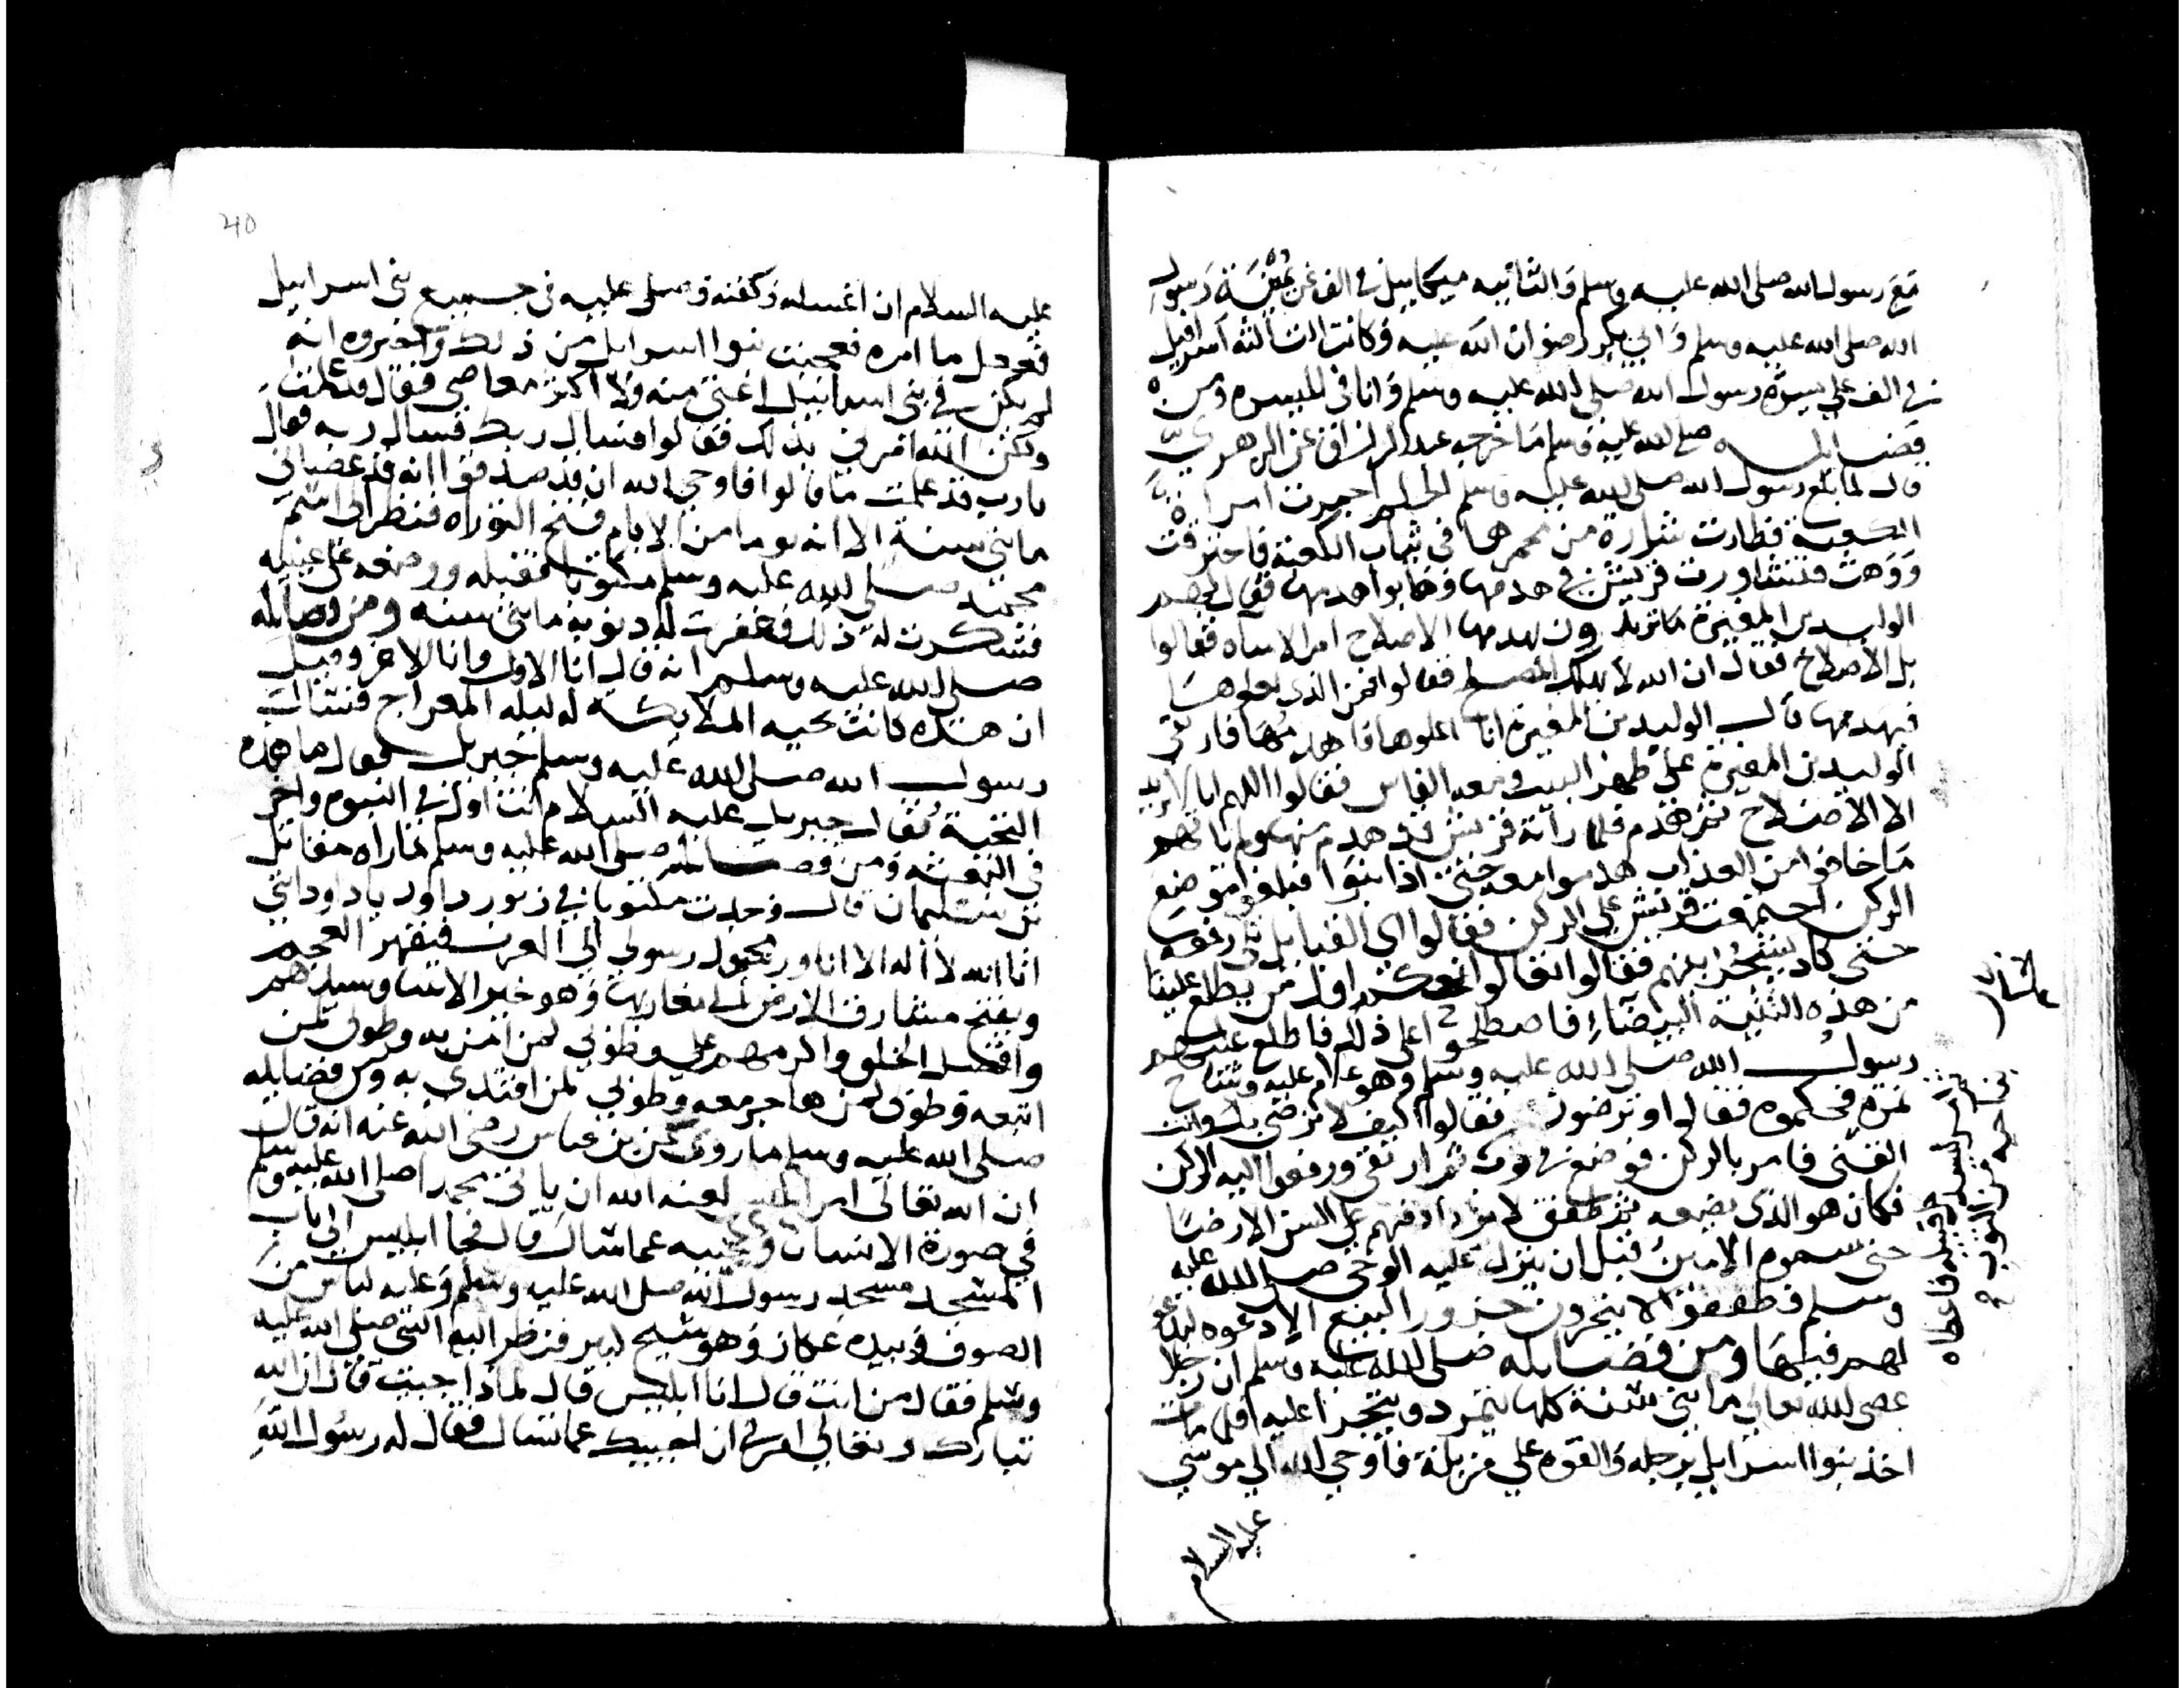 مع رسول الله صلى الله عليه وسلم والثانيه ميكاييل في الف عن يمينة رسول
الله صلى الله عليه وسلم وابي بكر رضوان الله عليه وكانت الثالثه اسرافيل
في الف علي ميسره رسول الله صلى الله عليه وسلم وانا في الميسره ومن
فضايله صلى الله عليه وسلم ما خرجه عبد الرزاق عن الزهري
قال لما بلغ رسول الله صلى الله عليه وسلم الحلم اجمرت امراة
الكعبة فطارت شرارة من مجمرها في ثياب الكعبة فاحترقت
ووهت فتشاورت قريش في هدمها وهابوا هدمها فقال لهم
الوليد بن المغيرة ما تريدون بهدمها الاصلاح ام الاساه فقالوا
بل الاصلاح فقال ان الله لا يهلك المصلح فقالوا فمن الذي يعلوها
فيهدمها قال الوليد بن المغيرة انا اعلوها فاهدمها فارتقى
الوليد بن المغيرة على ظهر البيت ومعه الفاس فقالوا اللهم انا لا نريد
الا الاصلاح ثم هدم فلما راته قريش قد هدم منها ولم ياتهم
ما خافوا من العذاب هدموا معه حتى اذا بنوا فبلغوا موضع
الركن اختصمت قريش علي الركن فقالوا اي القبايل تلي رفعه
حتى كاد يشتجر بينهم فقالوا تعالوا نحكم اول من يطلع علينا
من هذه الثنية البيضاء فاصطلحوا على ذلك فاطلع عليهم
رسول الله صلى الله عليه وسلم وهو غلام عليه وشاح
نمره فحكموه فقال او ترضون فقالوا كيف لا نرضى بك وانت
الفتى فامر بالركن فوضع في ثوب ثم ارتقى ورفعوا اليه الركن
فكان هو الذي يضعه ثم طفق لا يزداد فيهم على السن الا رضا
حتى سموه الامين قبل ان ينزل عليه الوحي صلى الله عليه
وسلم فطفقوا لا ينحرون جزورا لبيع الا دعوه ليدعو
لهم فيها ومن فضايله صلى الله عليه وسلم ان رجلا
عصى الله تعالي مايتي سنة كلها يتمرد ويتجرا عليه فلما مات
اخذ بنوا اسرايل برجله والقوه علي مزبلة فاوحي الله الي موسي
عليه السلام
40
عليه السلام ان اغسله وكفنه وصلي عليه في جميع بني اسرايل
ففعل ما امره فعجبت بنوا اسرايل من ذلك واخبروه انه
لم يكن في بني اسرائيل اعتى منه ولا اكثر معاصي فقال قد علمت
ولكن الله امرني بذلك فقالوا فسال ربك فسال ربه فقال
يا رب قد علمت ما قالوا فاوحي الله ان قد صدقوا انه قد عصاني
مايتي سنة الا انه يوما من الايام فتح التوراه فنظر الى اسم
محمد صلى الله عليه وسلم مكتوبا فقبله ووضعه على عينيه
فشكرت له ذلك فغفرت له ذنوبه مايتي سنه ومن فضايله
صلى الله عليه وسلم انه قال انا الاول وانا الاخر وقيل
ان هذه كانت تحيه الملايكه له ليله المعراج فسال
رسول الله صلى الله عليه وسلم جبريل فقال ما هذه
التحية فقال جبريل عليه السلام انت اول في النبوه واخر
في البعثه ومن فضايله صلى الله عليه وسلم ما رواه مقاتل
بن سليمان قال وجدت مكتوبا في زبور داود يا داود اني
انا الله لا اله الا انا ومحمد رسولي الي العرب فيقهر العجم
ويفتح مشارق الارض الي مغاربها وهو خير الانبيا وسيدهم
وافضل الخلق واكرمهم علي وطوبي لمن امن به وطوبى لمن
اتبعه وطوبى لمن هاجر معه وطوبي لمن اقتدي به ومن فضايله
صلى الله عليه وسلم ما روى عن بن عباس رضي الله عنه انه قال
ان الله تعالى امر ابليس لعنه الله ان ياتي محمدا صلى الله عليه وسلم
في صورة الانسان ويجيبه عما سال قال فجا ابليس الى باب
المسجد مسجد رسول الله صلى الله عليه وسلم وعليه لباس من
الصوف وبيده عكاز وهو شيخ كبير فنظر اليه النبي صلى الله عليه
وسلم فقال من انت قال انا ابليس قال لماذا جيت قال ان الله
تبارك وتعالي امرني ان اجيبك عما تسال فقال له رسول الله